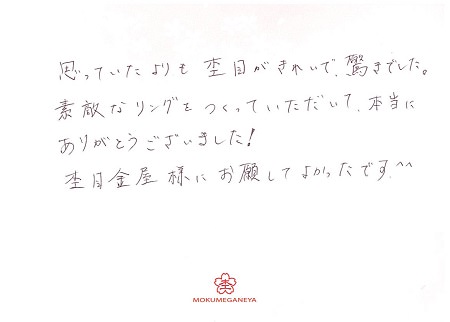 思っていたよりも杢目がきれいで、驚きでした。
素敵なリングをつくっていただいて、本当に
ありがとうございました!
杢目金屋様にお願してよかったです^^
杢
MOKUMEGANEYA